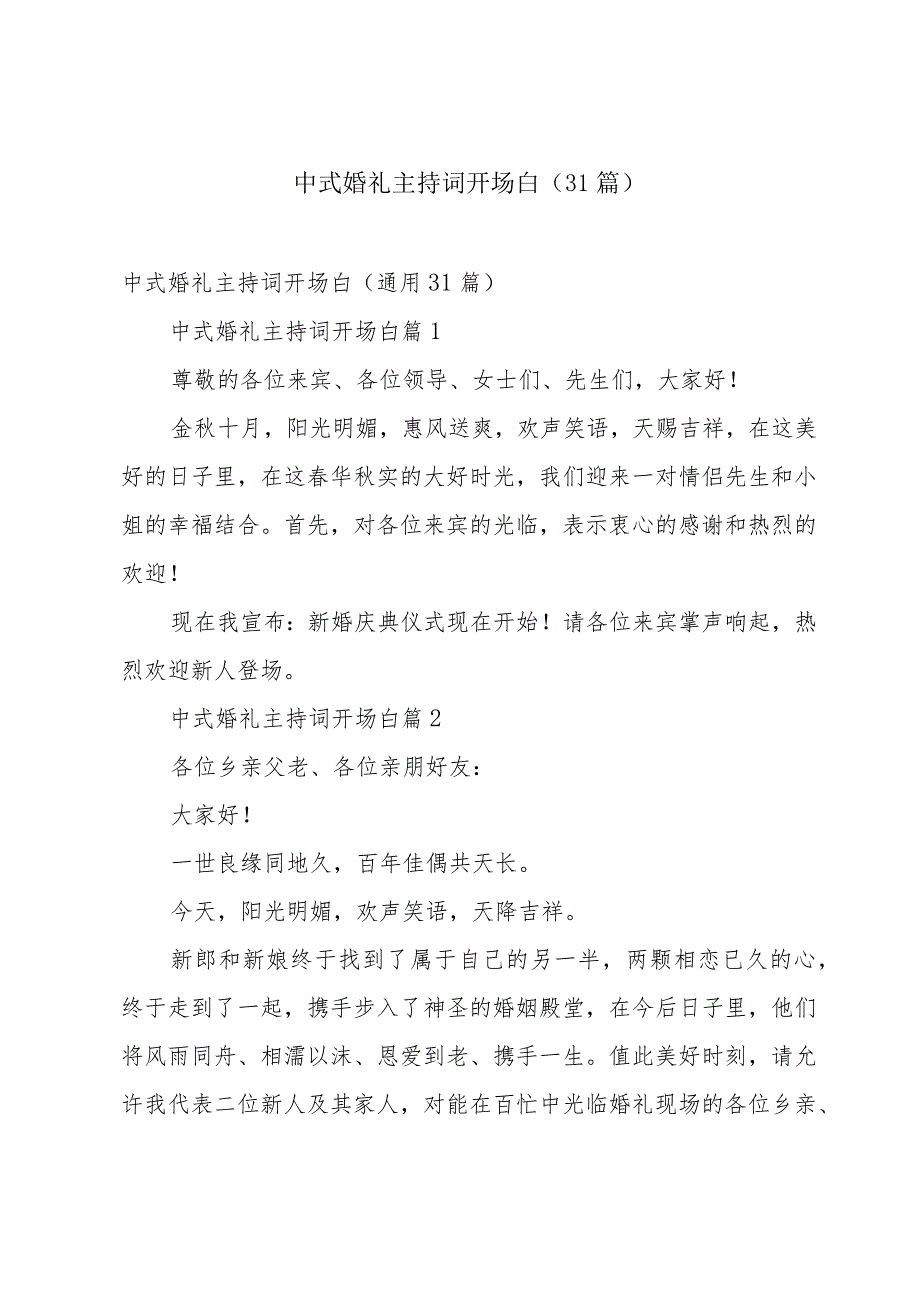 中式婚礼主持词开场白（31 篇）
中式婚礼主持词开场白（通用 31 篇）
中式婚礼主持词开场白篇 1
尊敬的各位来宾、各位领导、女士们、先生们，大家好！
金秋十月，阳光明媚，惠风送爽，欢声笑语，天赐吉祥，在这美
好的日子里，在这春华秋实的大好时光，我们迎来一对情侣先生和小
姐的幸福结合。首先，对各位来宾的光临，表示衷心的感谢和热烈的
欢迎！
现在我宣布：新婚庆典仪式现在开始！请各位来宾掌声响起，热
烈欢迎新人登场。
中式婚礼主持词开场白篇 2
各位乡亲父老、各位亲朋好友：
大家好！
一世良缘同地久，百年佳偶共天长。
今天，阳光明媚，欢声笑语，天降吉祥。
新郎和新娘终于找到了属于自己的另一半，两颗相恋已久的心，
终于走到了一起，携手步入了神圣的婚姻殿堂，在今后日子里，他们
将风雨同舟、相濡以沫、恩爱到老、携手一生。值此美好时刻，请允
许我代表二位新人及其家人，对能在百忙中光临婚礼现场的各位乡亲、